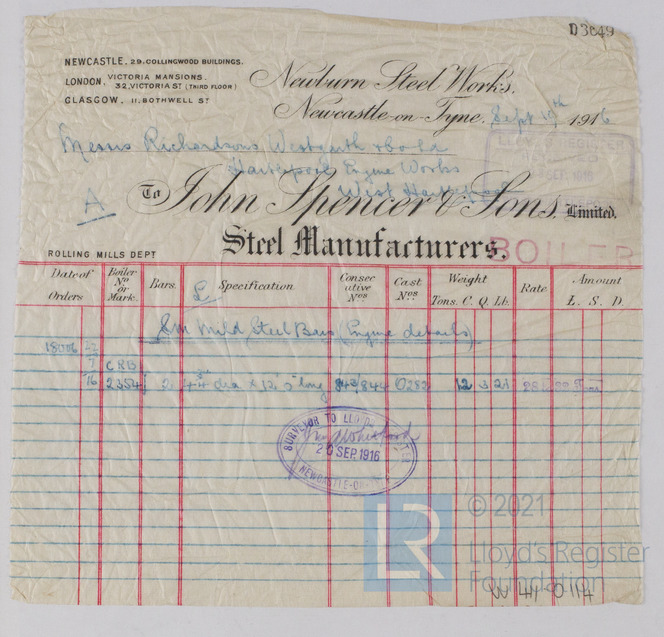 D3649
NEWCASTLE, 29. COLLINGWOOD BUILDINGS.
LONDON, VICTORIA MANSIONS.
32, VICTORIA ST (THIRD FLOOR)
GLASGOW, 11. BOTHWELL ST
Newburn Steel Works.
Newcastle-on-Tyne, Sept 19th 1916
Messrs Richardsons Westgarth & Co Ld
Hartlepool Engine Works
West Hartlepool
LLOYD'S REGISTER
SEP. 1916
A
To John Spencer & Sons, Limited.
Steel Manufacturers.
BOILER
ROLLING MILLS DEPT
Date of Orders Boiler No or Mark. Bars. Specification Consecutive Nos Cast Nos Weight Tons. C. Q. Lb. Rate Amount L. S. D.
Sm Mild Steel Bars (Engine details)
18006 22
7 CRB
16 2354 2 dia x 12' 0" long 843/844 12 3 21
SURVEYOR TO LLOYD'S REGISTER
20 SEP. 1916
NEWCASTLE-ON-TYNE
© 2021
LR Lloyd's Register
Foundation